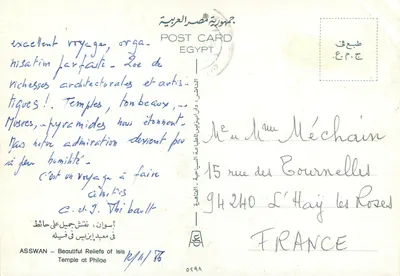 جمهورية مصر العربية
POST CARD
EGYPT
طبع فى
ج.م.ع.
excellent voyage, orga-
nisation parfaite. Que de
richesses architecturales et artis-
tiques! Temples, tombeaux,
Musées, pyramides nous étonnent.
Mais notre admiration devient peu
à peu humilité.
C'est un voyage à faire
Amitiés
C. et J. Thibault
أسوان . نقش جميل على حائط
فى معبد إيزيس فى فيله
ASSWAN – Beautiful Reliefs of Isis
Temple at Philae
M. et Mme Méchain
15 rue des Tournelles
94240 L'Haÿ les Roses
FRANCE